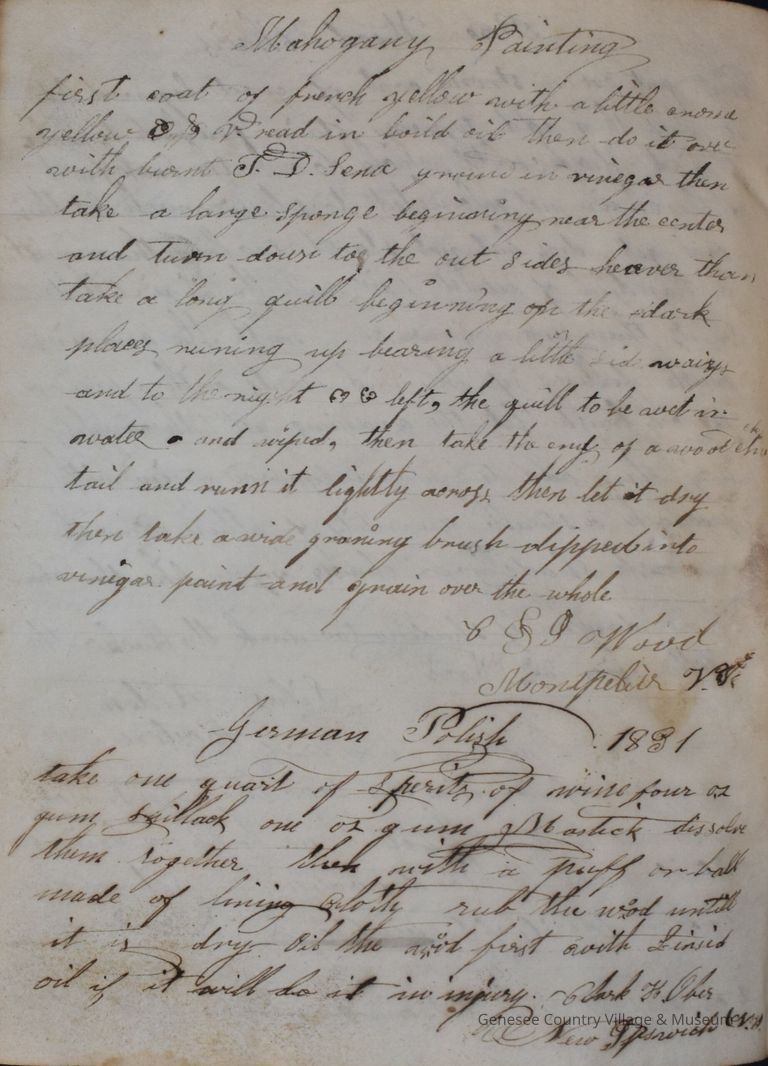 Mahogany Painting
first coat of french yellow with a little crome
yellow & V read in boild oil then do it over
with burnt T. D. Sena ground in vinegar then
take a large sponge beginning near the center
and turn down to the out sides heaver than
take a long quill beginning on the dark
places runing up bearing a little side ways
and to the right or left, the quill to be wet in
water and wiped, then take the end of a wood
tail and runn it lightly across then let it dry
then take a wide graning brush dipped into
vinegar paint and grain over the whole
S J Wood
Montpelier Vt
German Polish 1831
take one quart of sperits of wine four oz
gum one oz gum Mastick dissolve
them together then with a puff or ball
made of lining cloth rub the wood untill
it is dry Oil the wood first with Linsid
oil if it will do it no injury. Clark H. Ober
New Ipswich N.H.
Genesee Country Village & Museum